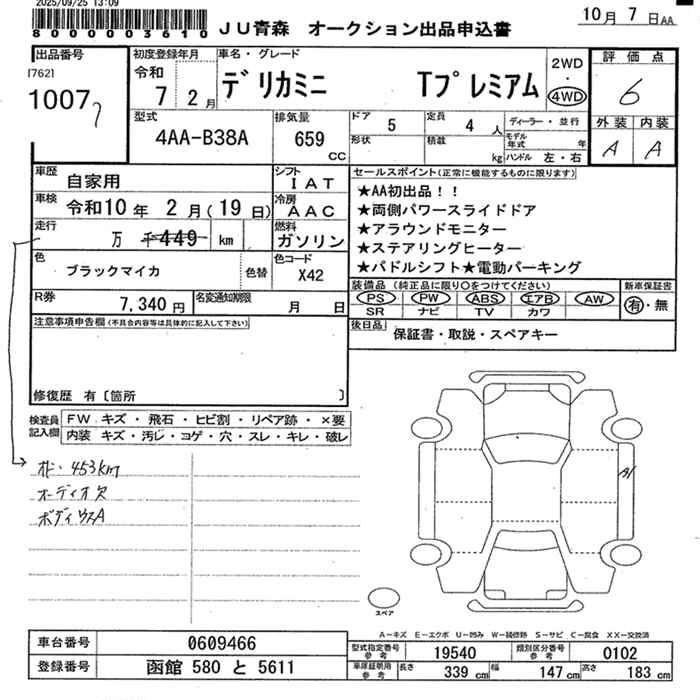 2025/09/25 13:09
8000003610
JU青森 オークション出品申込書
10月 7日AA
出品番号
[762]
1007
初度登録年月
令和
7 2月
車名・グレード
デリカミニ Tプレミアム
2WD
・
4WD
評価点
6
型式
4AA-B38A
排気量
659
CC
ドア
5
定員
4 人
形状
積載
kg
ディーラー・並行
モデル年式 年
ハンドル 左・右
外装 内装
A A
車歴
自家用
シフト
IAT
車検
令和10年 2月(19日)
冷房
AAC
走行
万 千449 km
燃料
ガソリン
色
ブラックマイカ
色替
色コード
X42
R券
7,340円
名変通知期限
月 日
セールスポイント(正常に機能するものに限ります)
★AA初出品!!
★両側パワースライドドア
★アラウンドモニター
★ステアリングヒーター
★パドルシフト★電動パーキング
装備品(純正品に限り○をつけてください)
PS PW ABS エアB AW
SR ナビ TV カワ
新車保証書
有・無
後日品
保証書・取説・スペアキー
注意事項申告欄(不具合内容等は具体的に記入して下さい)
修復歴 有〔箇所 〕
検査員記入欄
FW キズ・飛石・ヒビ割・リペア跡・×要
内装 キズ・汚レ・コゲ・穴・スレ・キレ・破レ
オド・453km
オーディオ欠
ボディウスA
A1
スペア
A−キズ E−エクボ U−凹み W−補修跡 S−サビ C−腐食 XX−交換済
車台番号
0609466
型式指定番号
参考
19540
類別区分番号
参考
0102
登録番号
函館 580 と 5611
車庫証明用
参考
長さ
339 cm
幅
147 cm
高さ
183 cm